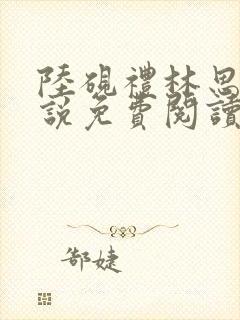 陸硯禮林思
說免費閱讀
郜婕